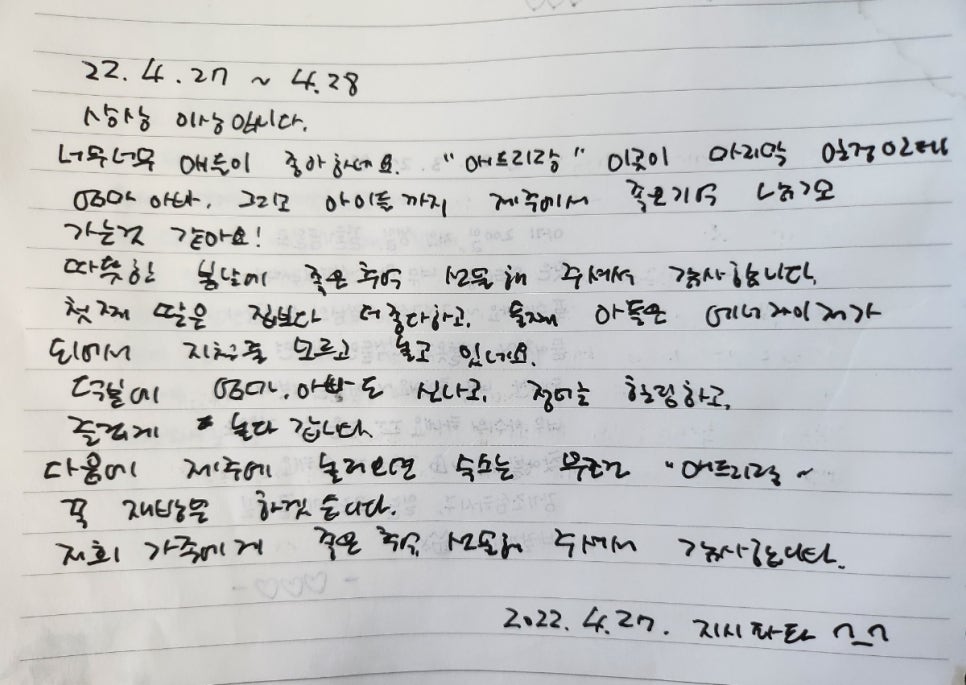 22. 4. 27 ~ 4.28
상상 이상입니다.
너무너무 애들이 좋아하네요. "애드리랑" 이곳이 마지막 여정인데
엄마 아빠. 그리고 아이들까지 제주에서 좋은기억 남기고
가는것 같아요!
따뜻한 봄날에 좋은추억 선물해 주셔서 감사합니다.
첫째 딸은 집보다 더좋다하고. 둘째 아들은 에너자이저가
되어서 지침을 모르고 놀고 있네요.
덕분에 엄마.아빠도 신나고. 장어는 힐링하고.
즐겁게 놀다 갑니다.
다음에 제주에 놀러오면 숙소는 무조건 "애드리랑~
꼭 재방문 하겠습니다.
저희 가족에게 좋은 추억 선물해 주셔서 감사합니다.
2022. 4.27. 지시파타 ㄱ_ㄱ